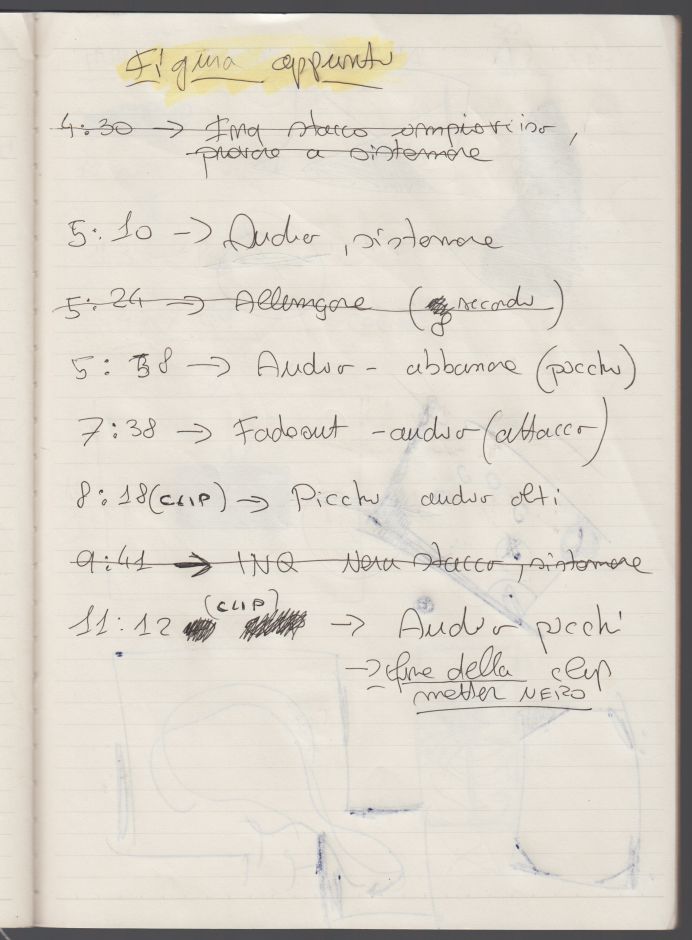 Figura appunti
4:30 → Inq stacco ,
provare a sistemare
5:10 → Audio, sistemare
5:24 → Allungare (8 secondi)
5:38 → Audio - abbassare (picchi)
7:38 → Fadeout - audio (attacco)
8:18 (CLIP) → Picchi audio alti
9:41 → INQ Nero stacco, sistemare
11:12 (CLIP) → Audio picchi
→ fine della clip
metter NERO